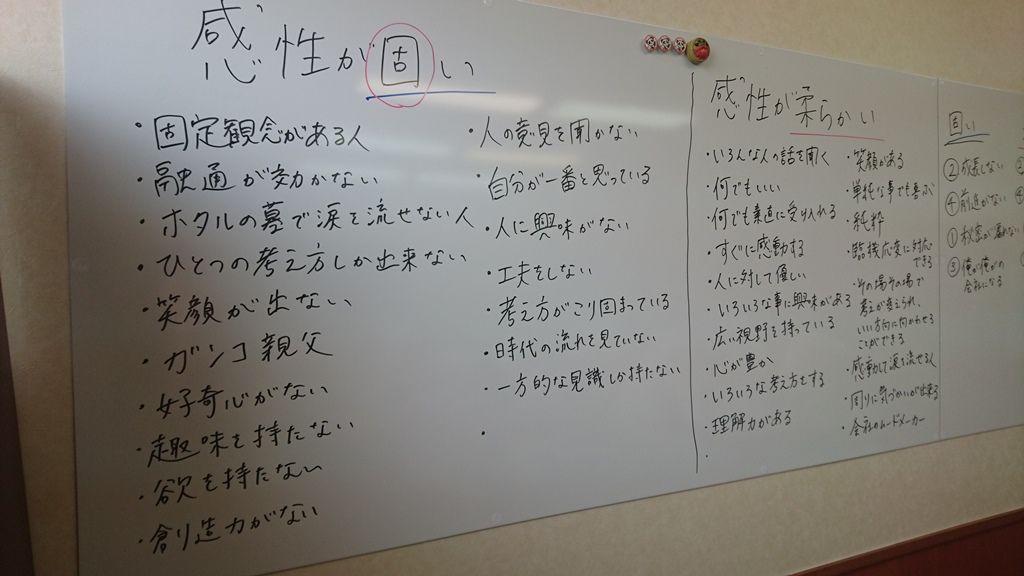 感性が固い
・固定観念がある人
・融通が効かない
・ホタルの墓で涙を流せない人
・ひとつの考え方しか出来ない
・笑顔が出ない
・ガンコ親父
・好奇心がない
・趣味を持たない
・欲を持たない
・創造力がない
・人の意見を聞かない
・自分が一番と思っている
・人に興味がない
・工夫をしない
・考え方がこり固まっている
・時代の流れを見ていない
・一方的な見識しか持たない
・
感性が柔らかい
・いろんな人の話を聞く
・何でもいい
・何でも素直に受け入れる
・すぐに感動する
・人に対して優しい
・いろいろな事に興味がある
・広い視野を持っている
・心が豊か
・いろいろな考え方をする
・理解力がある
・
・笑顔がある
・単純な事でも喜ぶ
・純粋
・臨機応変に対応
できる
・その場その場で
考えが変えられ、
いい方向に向かわせる
ことができる
・感動して涙を流せる人
・周りに気づかいが出来る
・会社のムードメーカー
固い
②成長しない
④前進がない
①秘密が漏れない
③俺が俺がの
会社になる